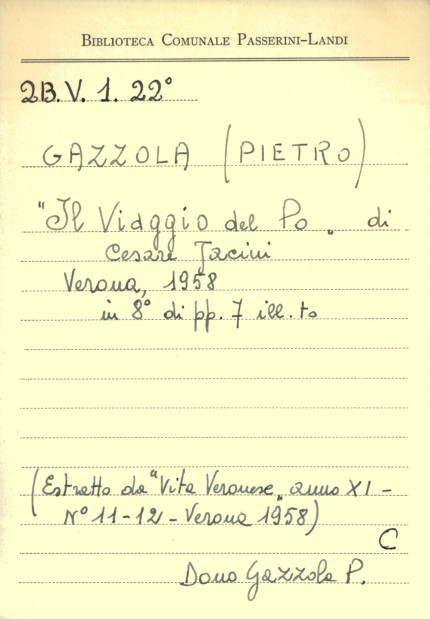 BIBLIOTECA COMUNALE PASSERINI-LANDI
2B.V. 1. 22°
GAZZOLA (PIETRO)
"Il Viaggio del Po„ di
Cesare Jacini
Verona, 1958
in 8° di pp. 7 ill.to
(Estratto da "Vita Veronese„ anno XI -
N° 11-12 - Verona 1958)
C
Dono Gazzola P.